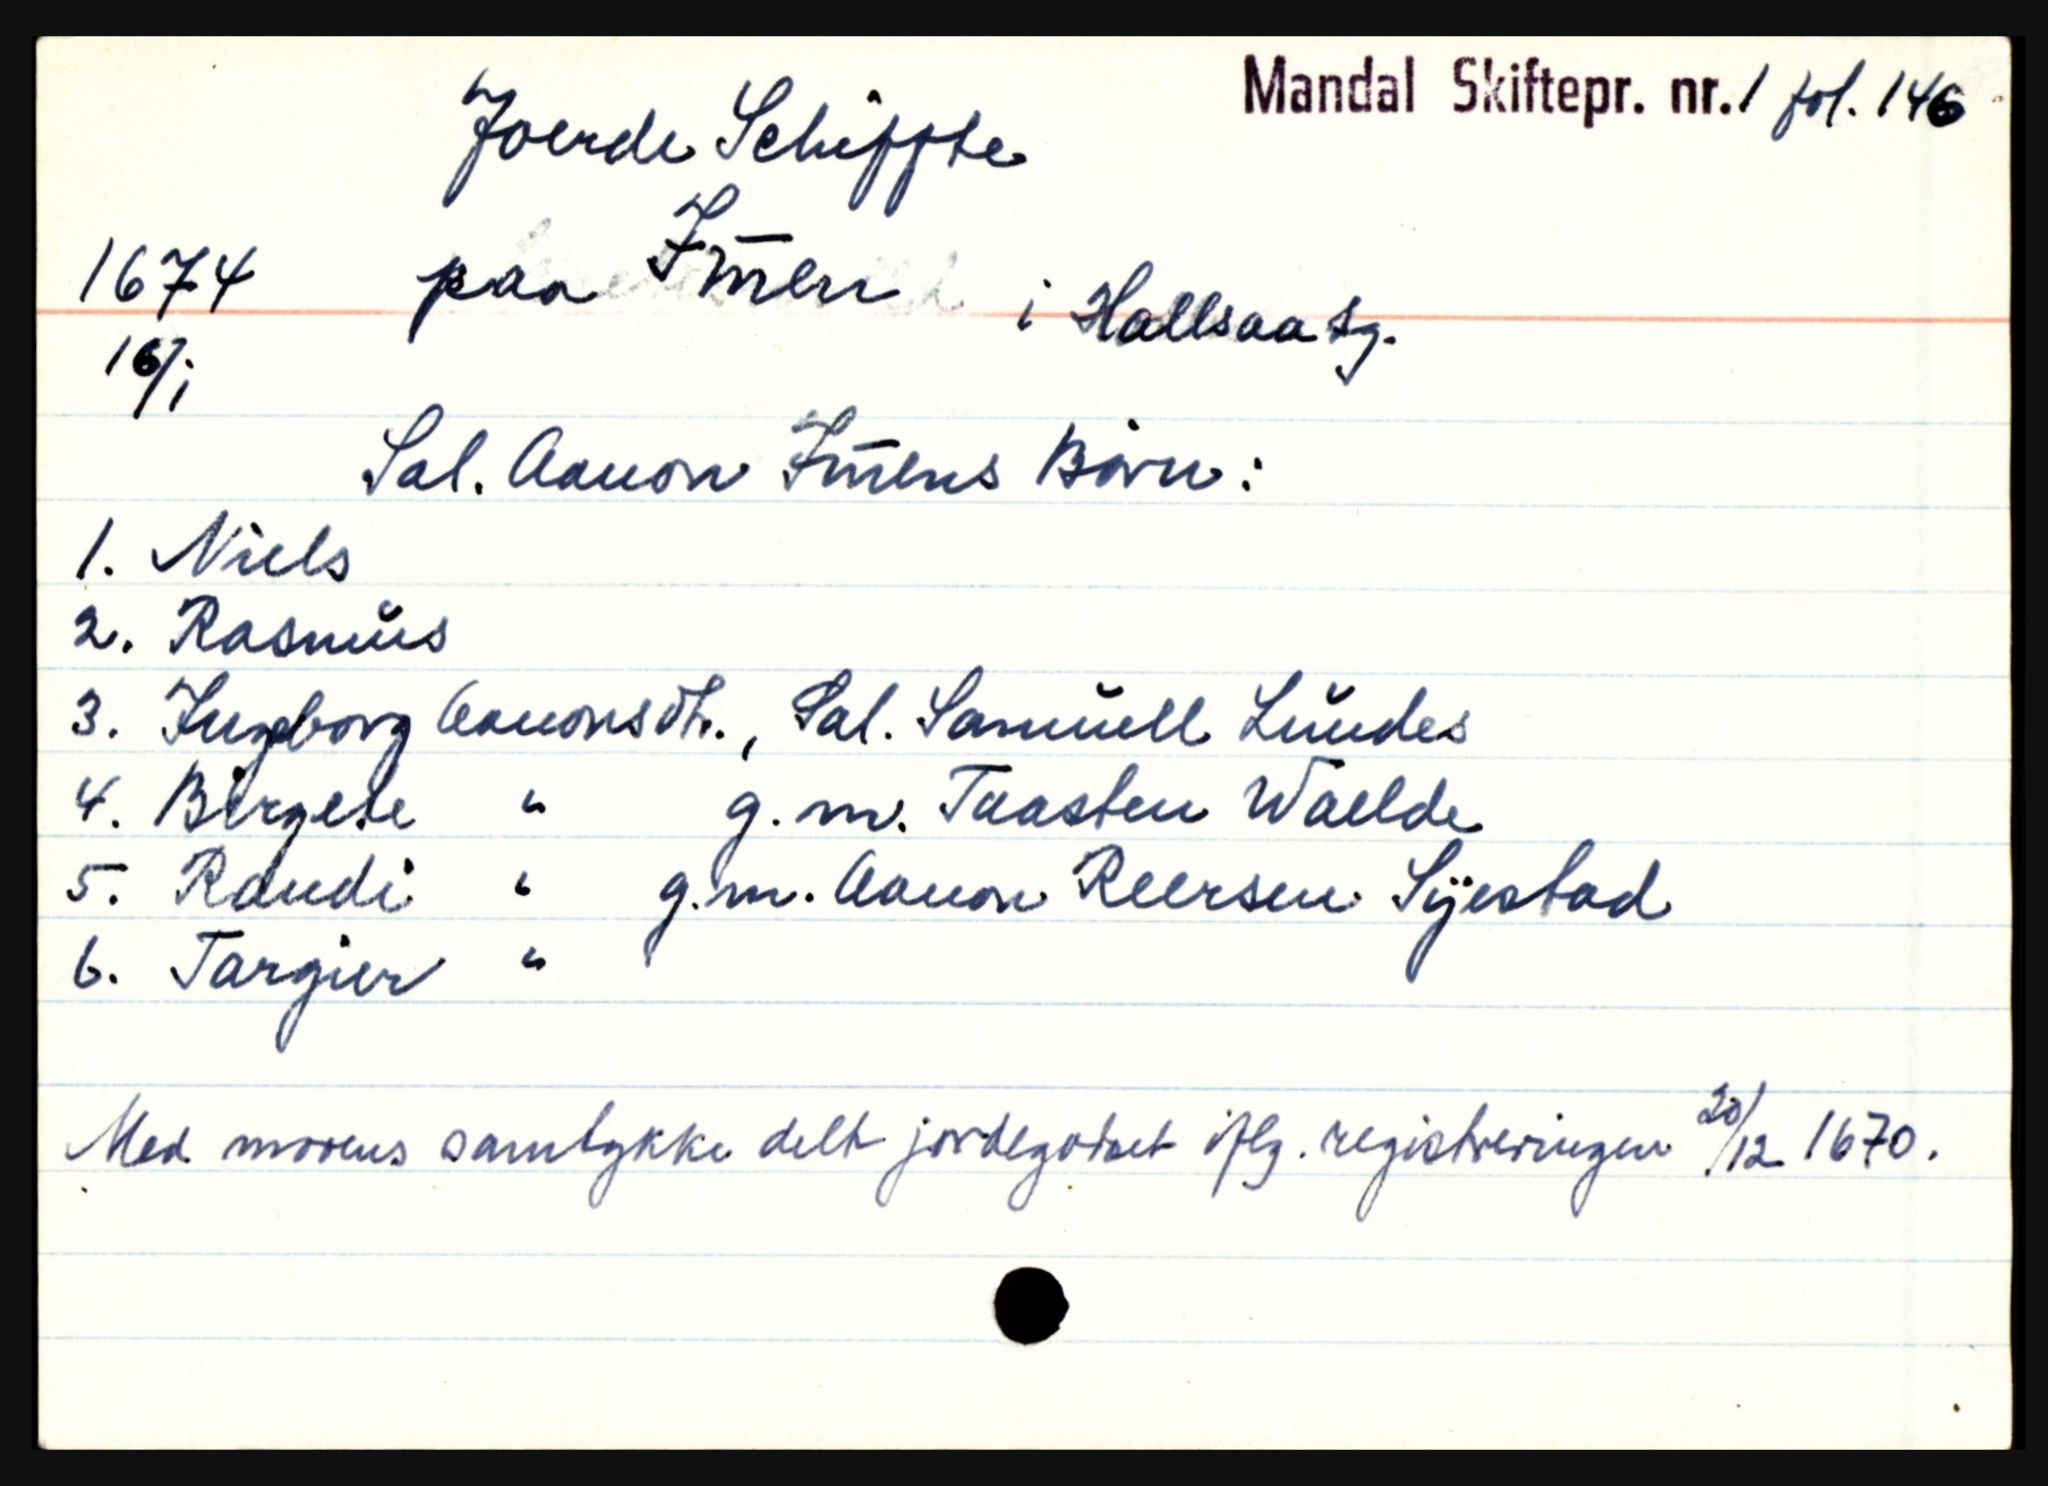 Mandal Skiftepr. nr. 1 fol. 146
Joerde Schiffte
1674 paa Im̄en i Hallsaa tg.
16/1
Sal. Aanon Im̄ens Børn:
1. Niels
2. Rasmŭs
3. Ingeborg Aanonsdt., Sal. Samŭell Lŭndes
4. Birgete " g. m. Taasten Waelde
5. Randi " g. m. Aanon Reersen Syestad
6. Targier "
Med morens samtykke delt jordegodset iflg. registreringen 20/12 1670.